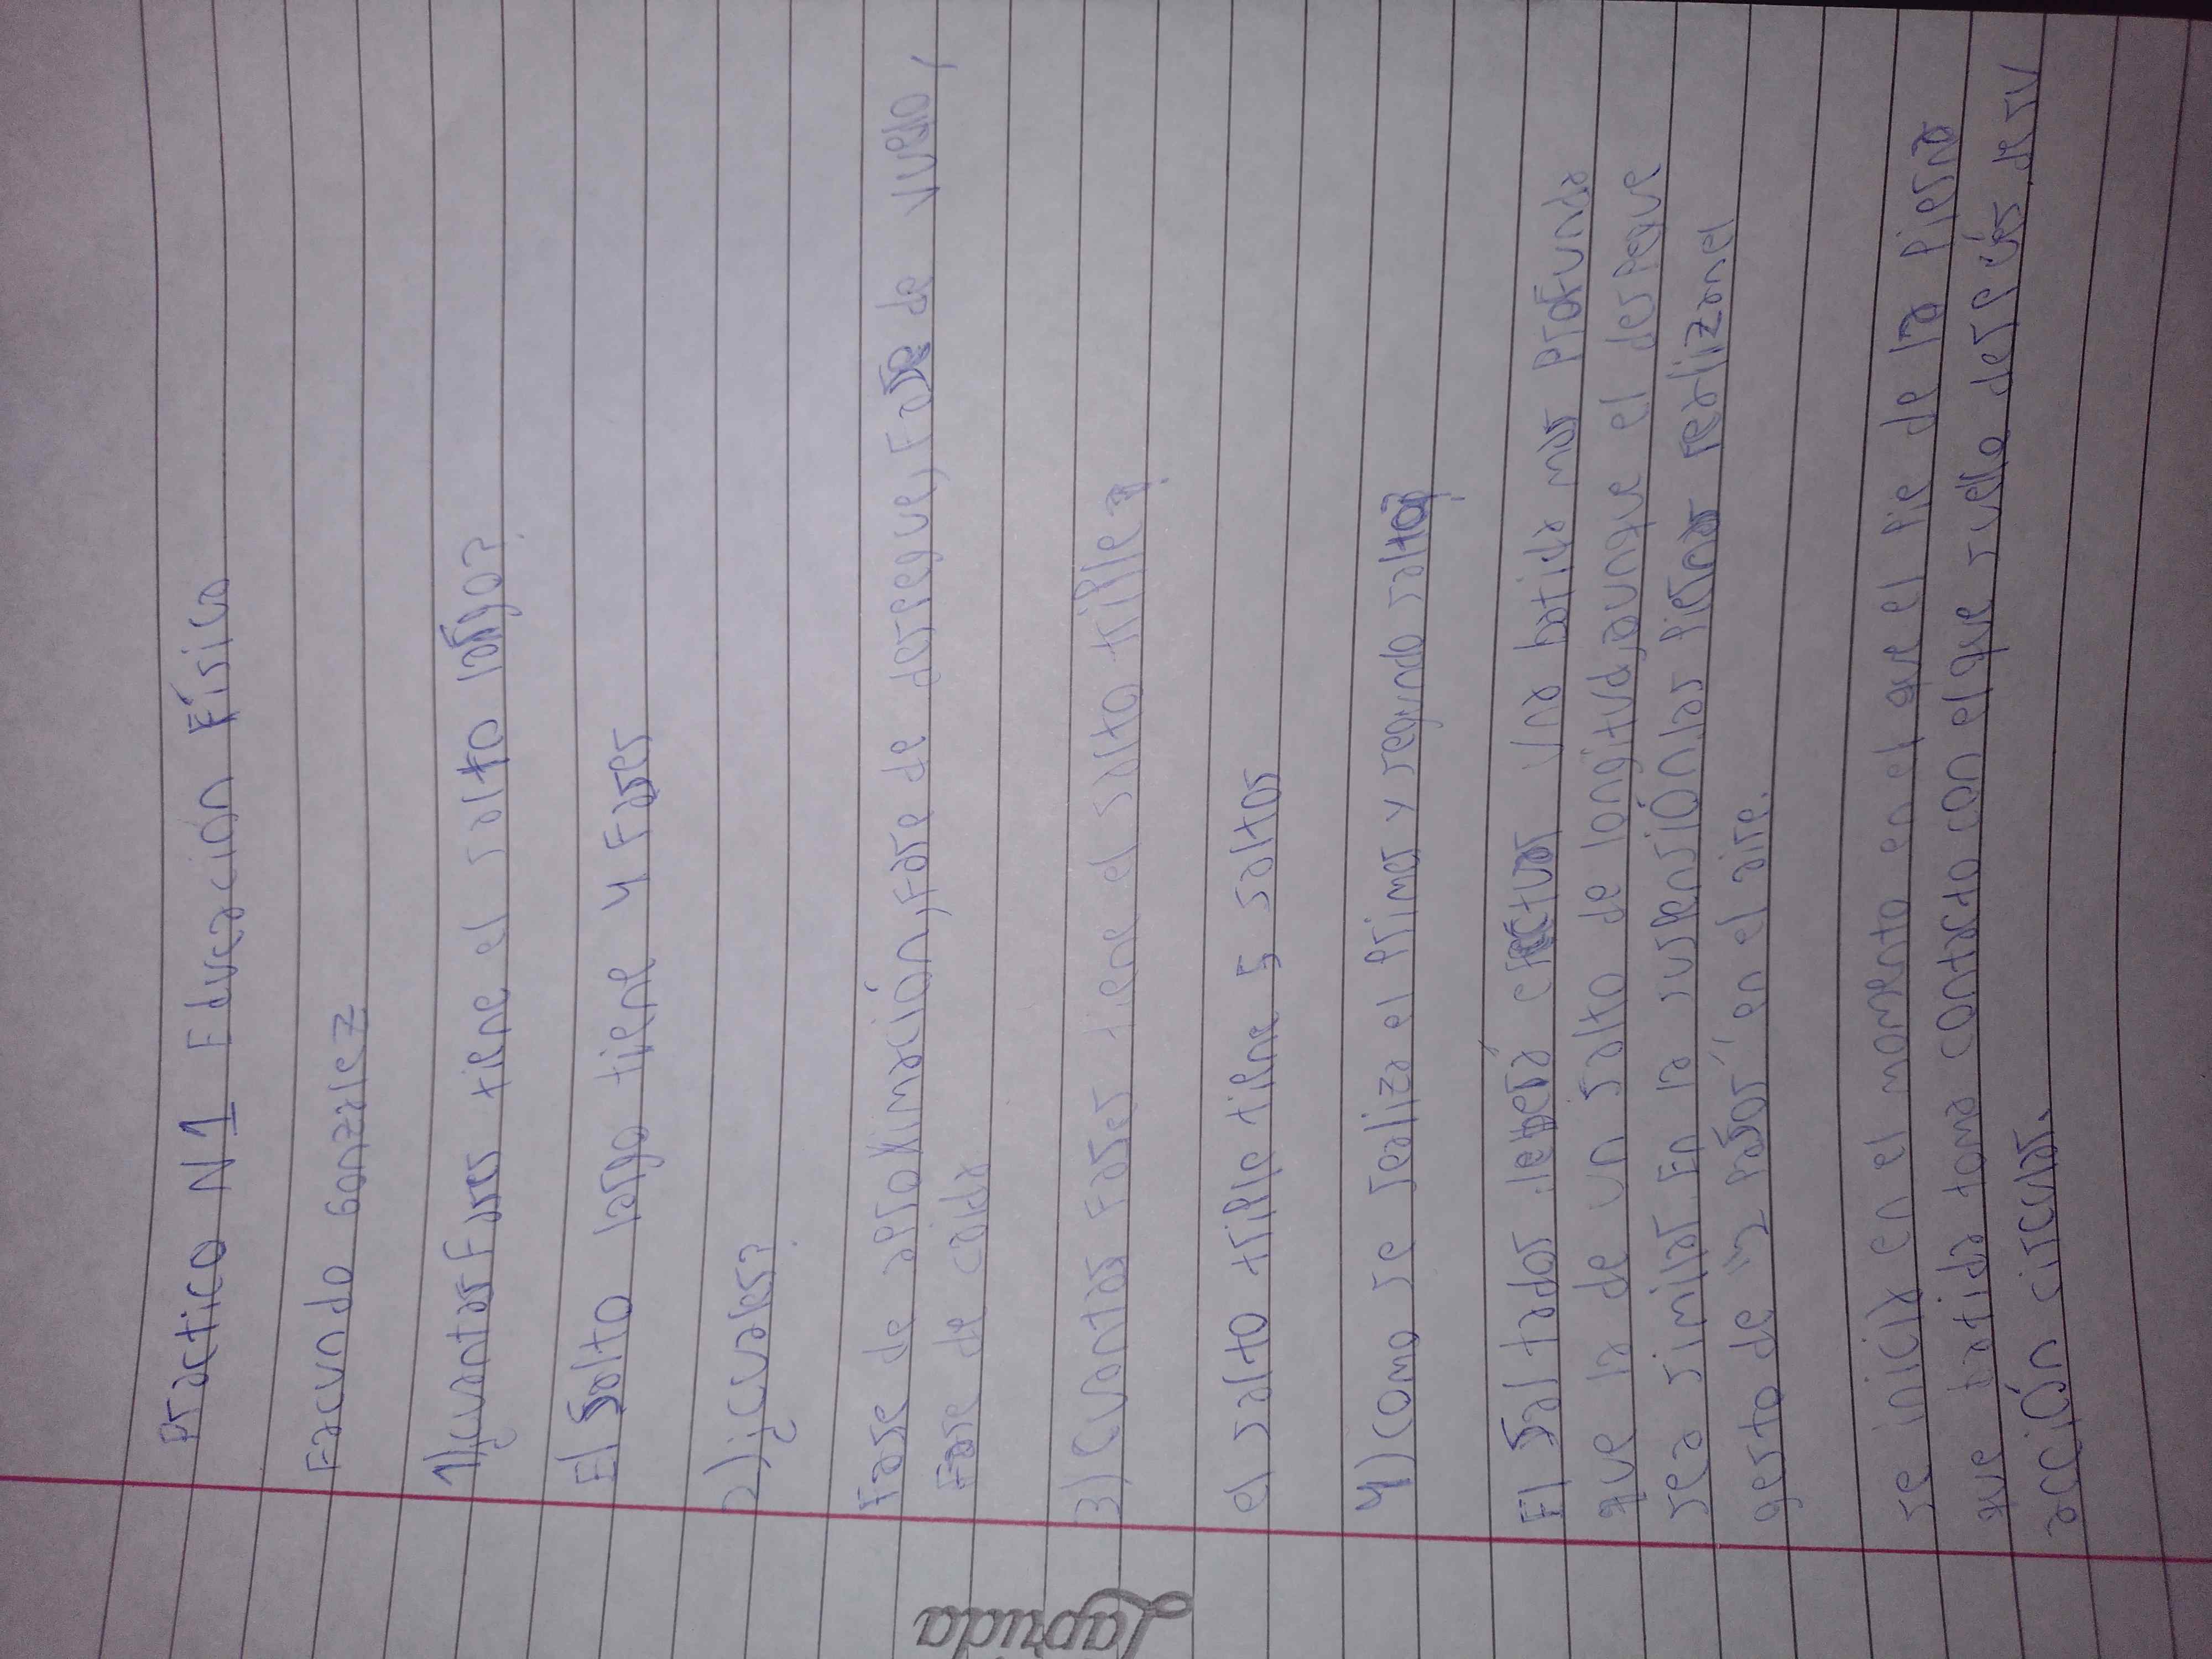 Practico N 1 Educación Física
Facundo Gonzalez
1)¿cuantas Fases tiene el salto largo?
El Salto largo tiene 4 Fases
2)¿cuales?
Fase de aproximación, Fase de despegue, Fase de vuelo,
Fase de caida
3) Cuantas Fases tiene el salto triple?
el salto triple tiene 5 saltos
4) Como se realiza el primer y segundo salto?
El Saltador: deberá efectuar una batida mas profunda
que la de un salto de longitud, aunque el despegue
sea similar. En la suspensión, las piernas realizan el
gesto de "5 pasos" en el aire.
se inicia en el momento en el que el pie de la pierna
que batida toma contacto con el que suelo después de su
acción circular.
Laprida